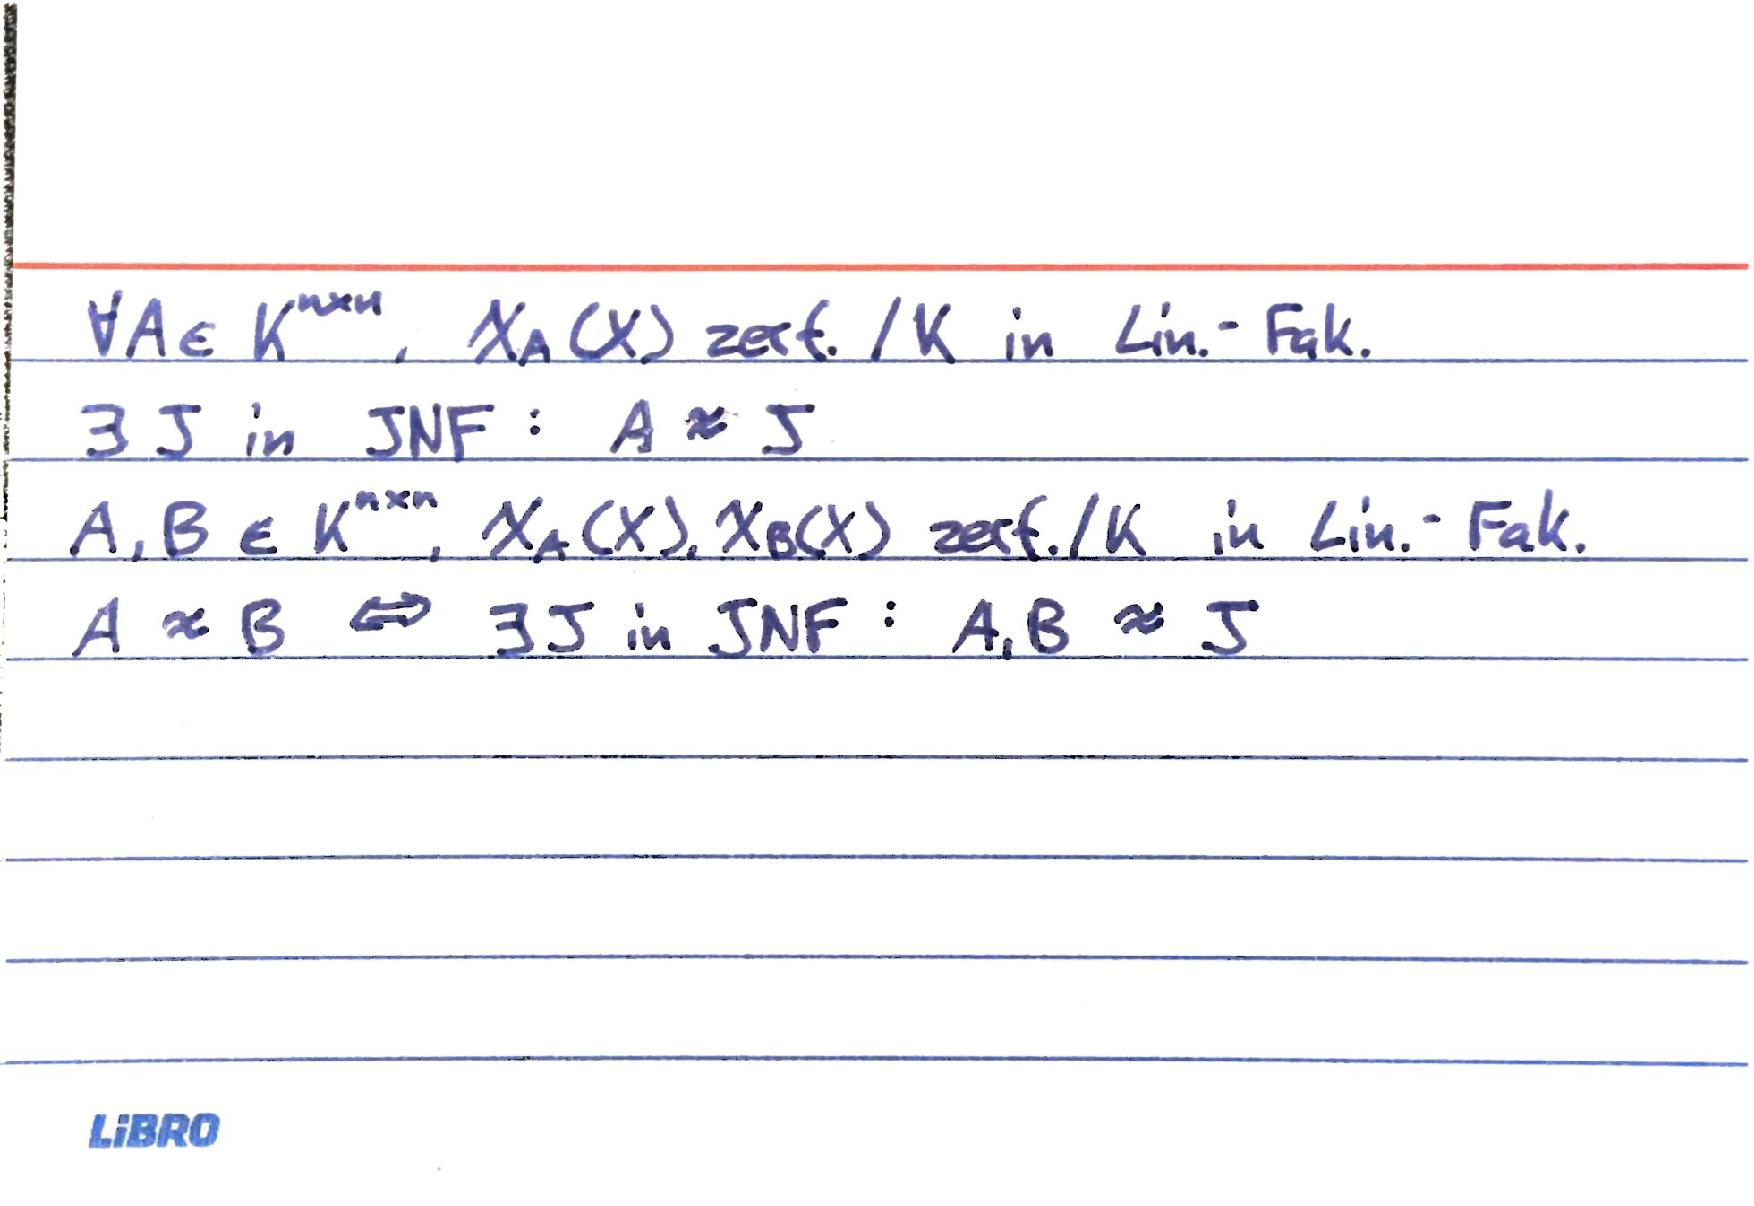 ∀A ∈ K^{n×n}, χ_A(X) zerf. /K in Lin.-Fak.
∃ J in JNF : A ≈ J
A, B ∈ K^{n×n}, χ_A(X), χ_B(X) zerf. /K in Lin.-Fak.
A ≈ B ⇔ ∃ J in JNF : A, B ≈ J
LiBRO